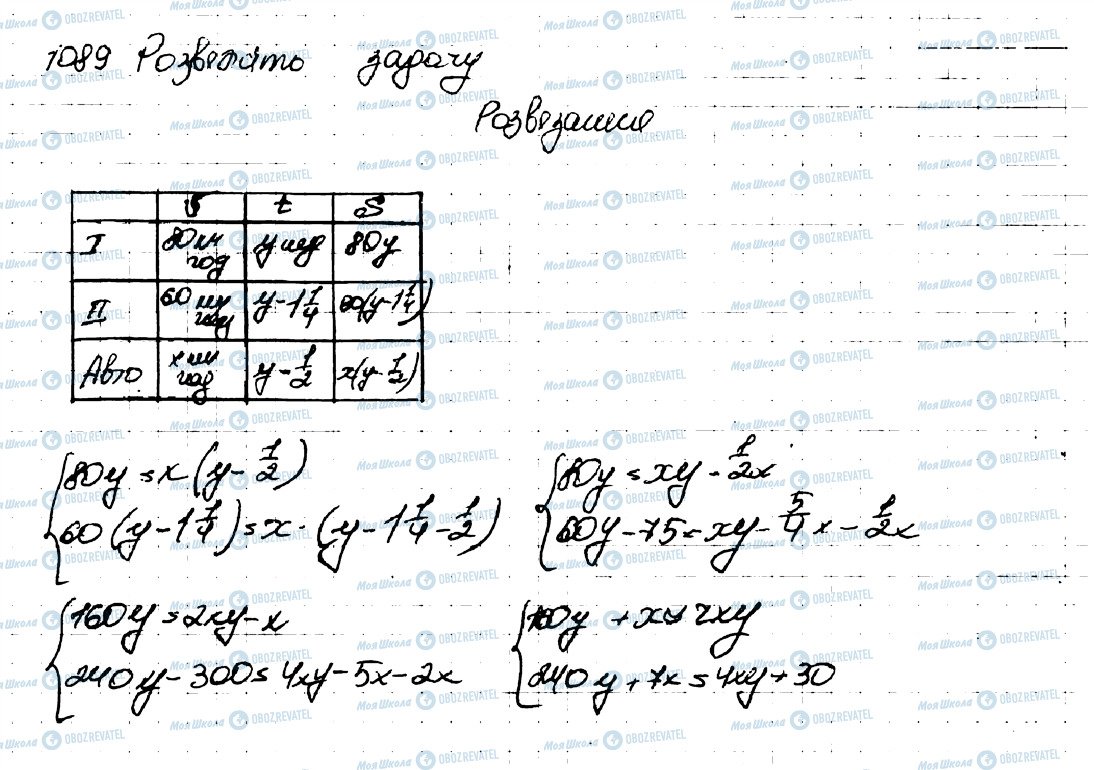 1089 Розвязати задачу
Розвязання
V t S
I 80 км год y год 80y
II 60 км год y-1 1/4 60(y-1 1/4)
Авто x км год y-1/2 x(y-1/2)
80y = x(y-1/2)
60(y-1 1/4) = x·(y-1 1/4-1/2)
80y = xy-1/2x
60y-75 = xy-5/4x-1/2x
160y = 2xy-x
240y-300 = 4xy-5x-2x
160y+x = 2xy
240y+7x = 4xy+30